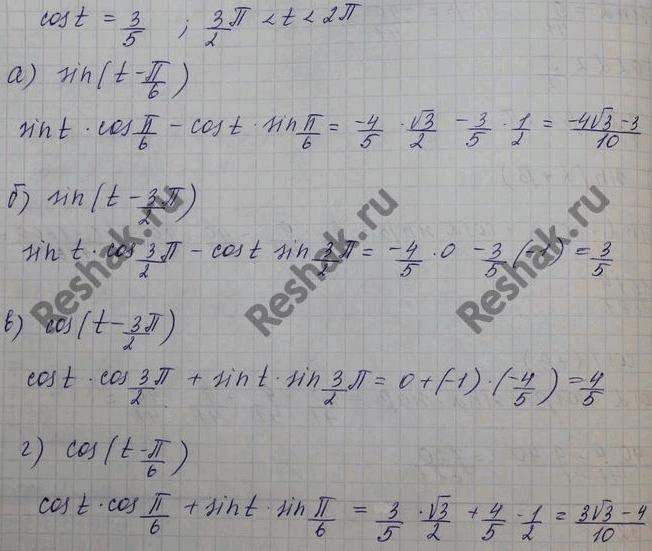 cos t = 3/5 ; 3/2 π < t < 2π
а) sin(t - π/6)
sin t · cos π/6 - cos t · sin π/6 = -4/5 · √3/2 - 3/5 · 1/2 = -4√3 - 3/10
б) sin(t - 3/2 π)
sin t · cos 3/2 π - cos t sin 3/2 π = -4/5 · 0 - 3/5 · (-1) = 3/5
в) cos(t - 3/2 π)
cos t · cos 3/2 π + sin t · sin 3/2 π = 0 + (-1) · (-4/5) = 4/5
г) cos(t - π/6)
cos t · cos π/6 + sin t · sin π/6 = 3/5 · √3/2 + 4/5 · 1/2 = 3√3 - 4/10
Reshak.ru
Reshak.ru
Reshak.ru